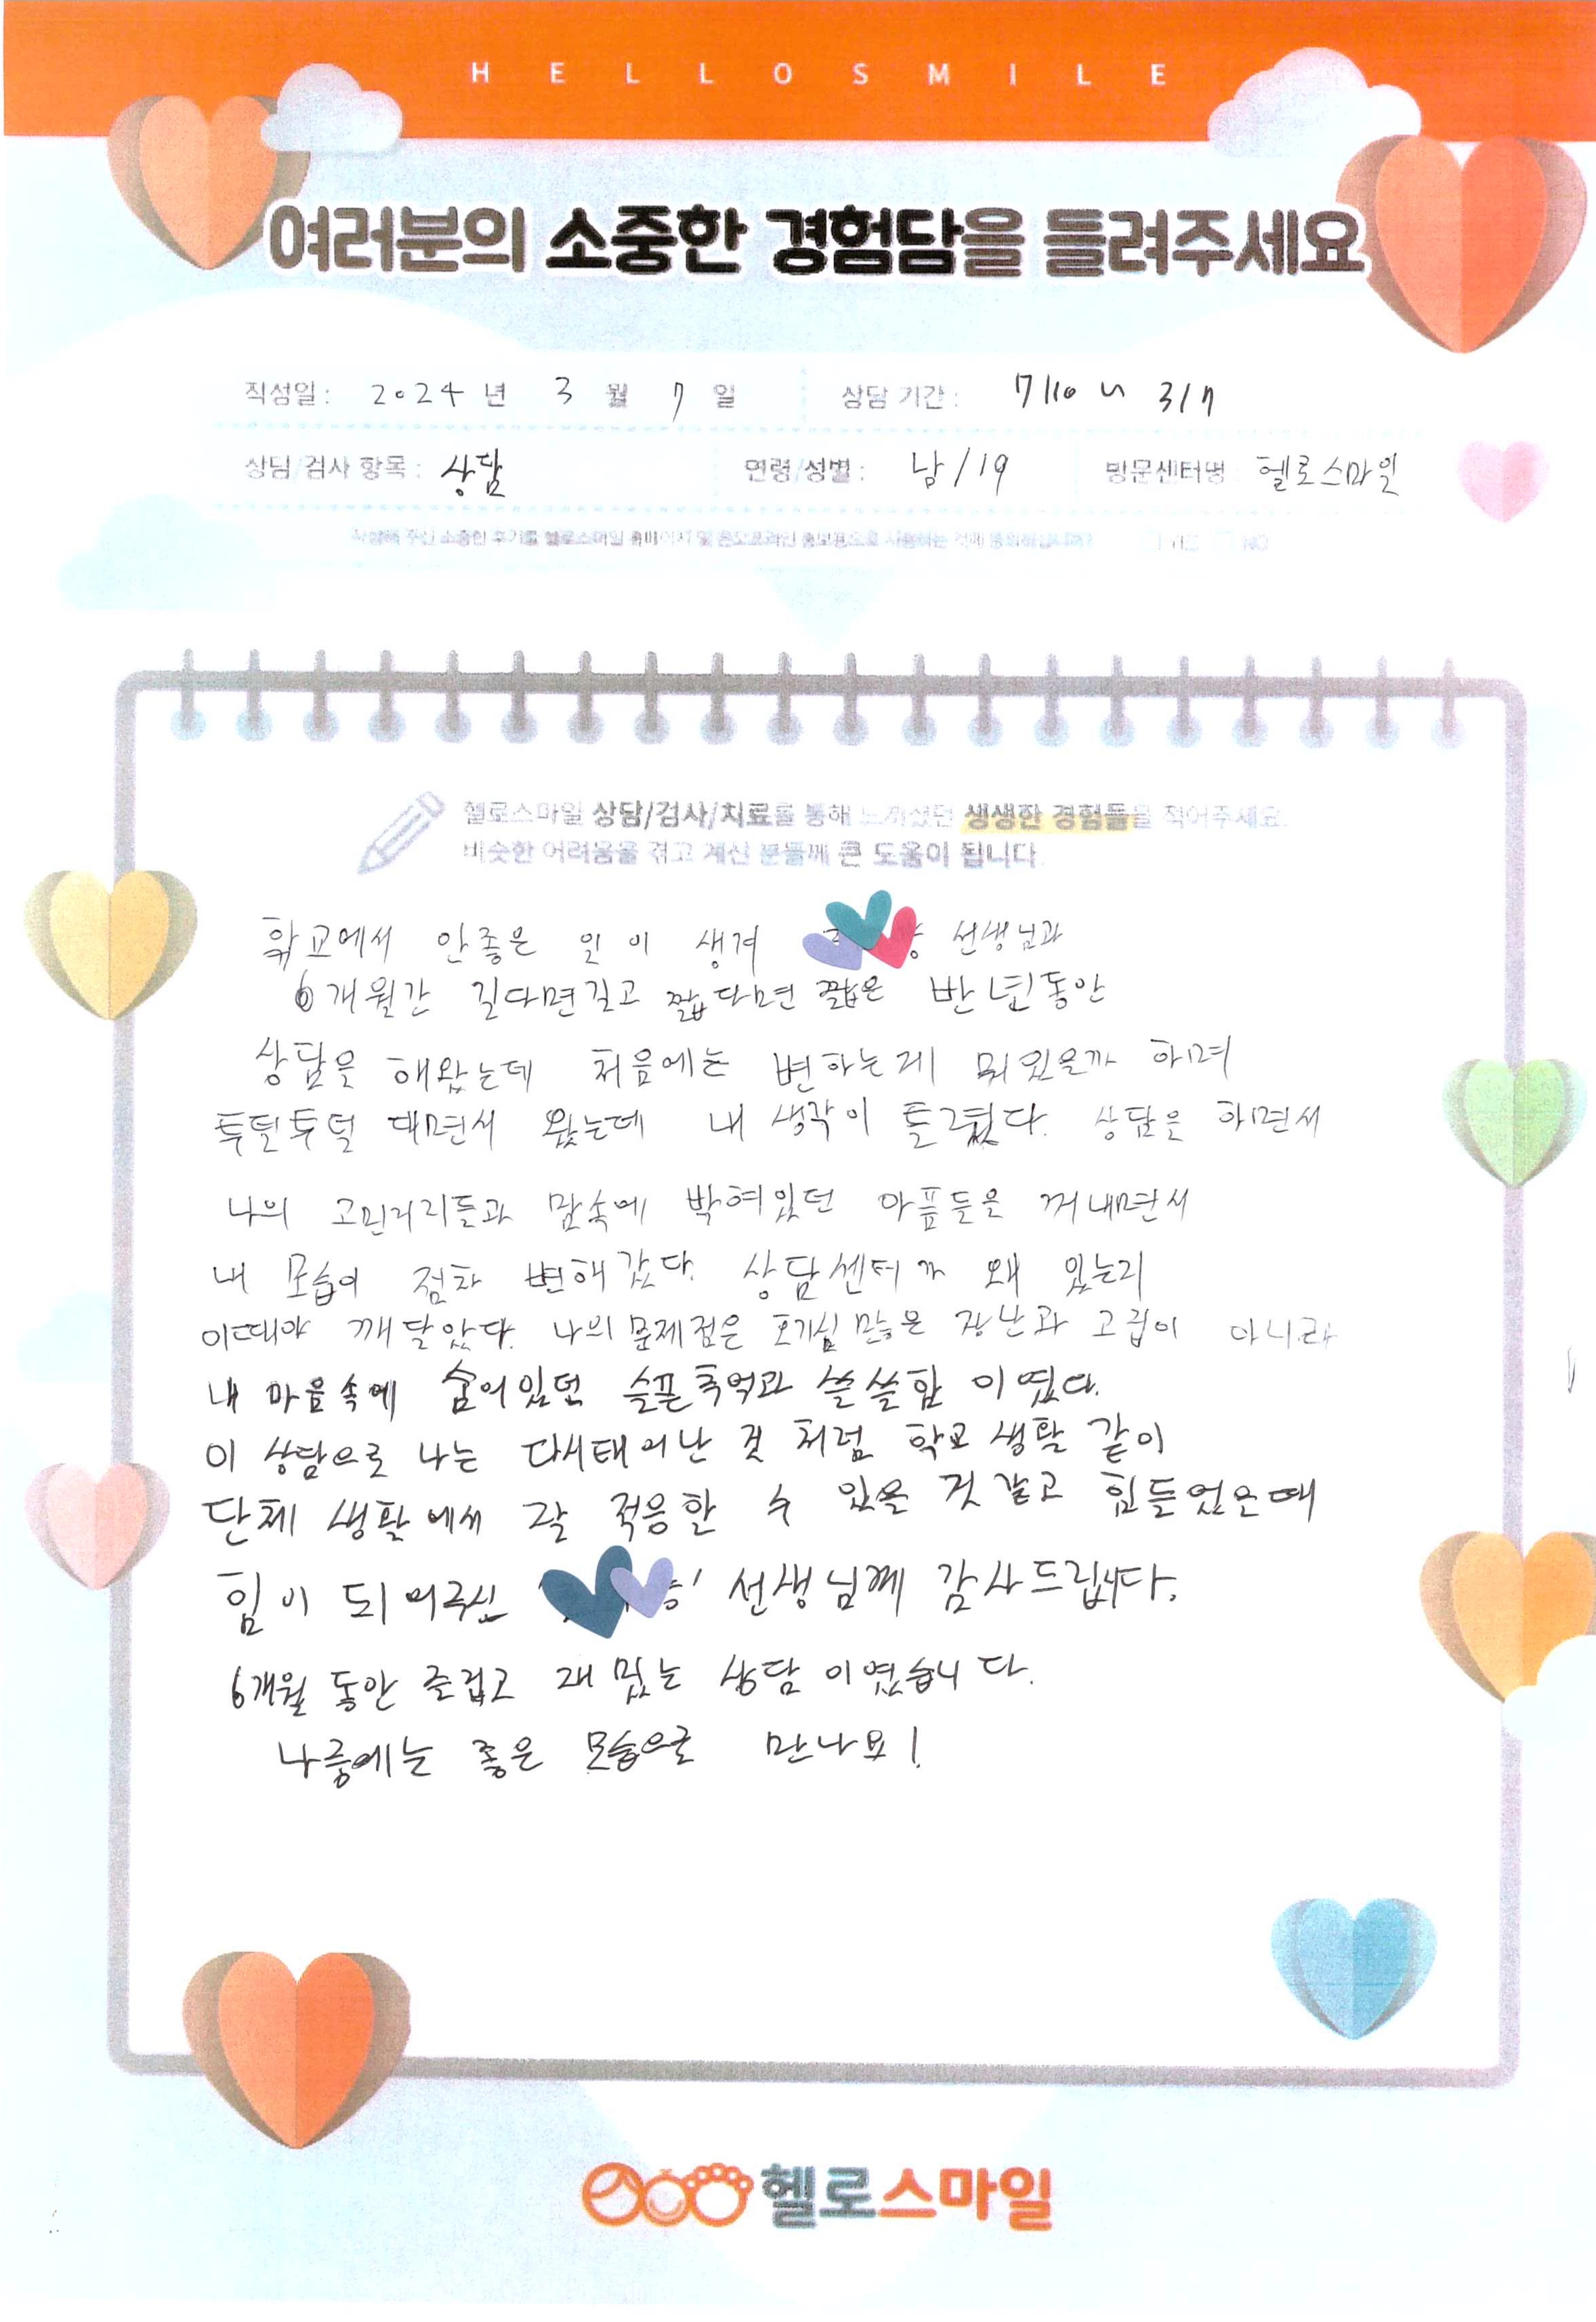 HELLOSMILE
여러분의 소중한 경험담을 들려주세요
직성일 : 2024 년 3 월 7 일 상담 기간 : 7/10 ~ 3/7
상담/검사 항목 : 상담 연령/성별 : 남/19 방문센터명 헬로스마일
작성해 주신 소중한 후기를 헬로스마일 홈페이지 및 온오프라인 홍보용으로 사용하는 것에 동의하십니까? YES NO
헬로스마일 상담/검사/치료를 통해 느끼셨던 생생한 경험들을 적어주세요.
비슷한 어려움을 겪고 계신 분들께 큰 도움이 됩니다.
학교에서 안좋은 일이 생겨 선생님과
6개월간 길다면길고 짧다면 짧은 반년동안
상담을 해왔는데 처음에는 변하는게 뭐있을까 하며
투덜투덜 대면서 왔는데 내 생각이 틀렸다. 상담을 하면서
나의 고민거리들과 맘속에 박혀있던 아픔들을 꺼내면서
내 모습이 점차 변해갔다. 상담센터가 왜 있는지
이때야 깨달았다. 나의 문제점은 호기심 많은 장난과 고립이 아니라
내 마음속에 숨어있던 슬픈추억과 쓸쓸함 이였다.
이 상담으로 나는 다시태어난 것 처럼 학교 생활 같이
단체 생활에서 잘 적응할 수 있을 것 같고 힘들었을때
힘이 되어주신 선생님께 감사드립니다.
6개월 동안 즐겁고 재밌는 상담 이였습니다.
나중에는 좋은 모습으로 만나요!
헬로스마일